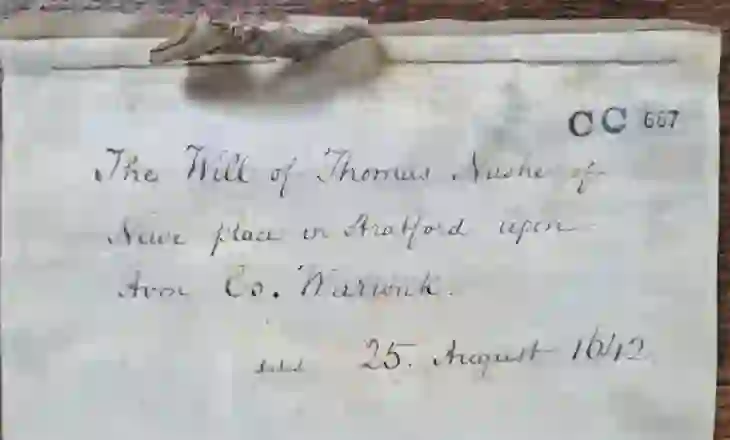 CC 667
The Will of Thomas Nashe of
Newe place in Stratford upon
Avon Co. Warwick.
dated 25. August 1642